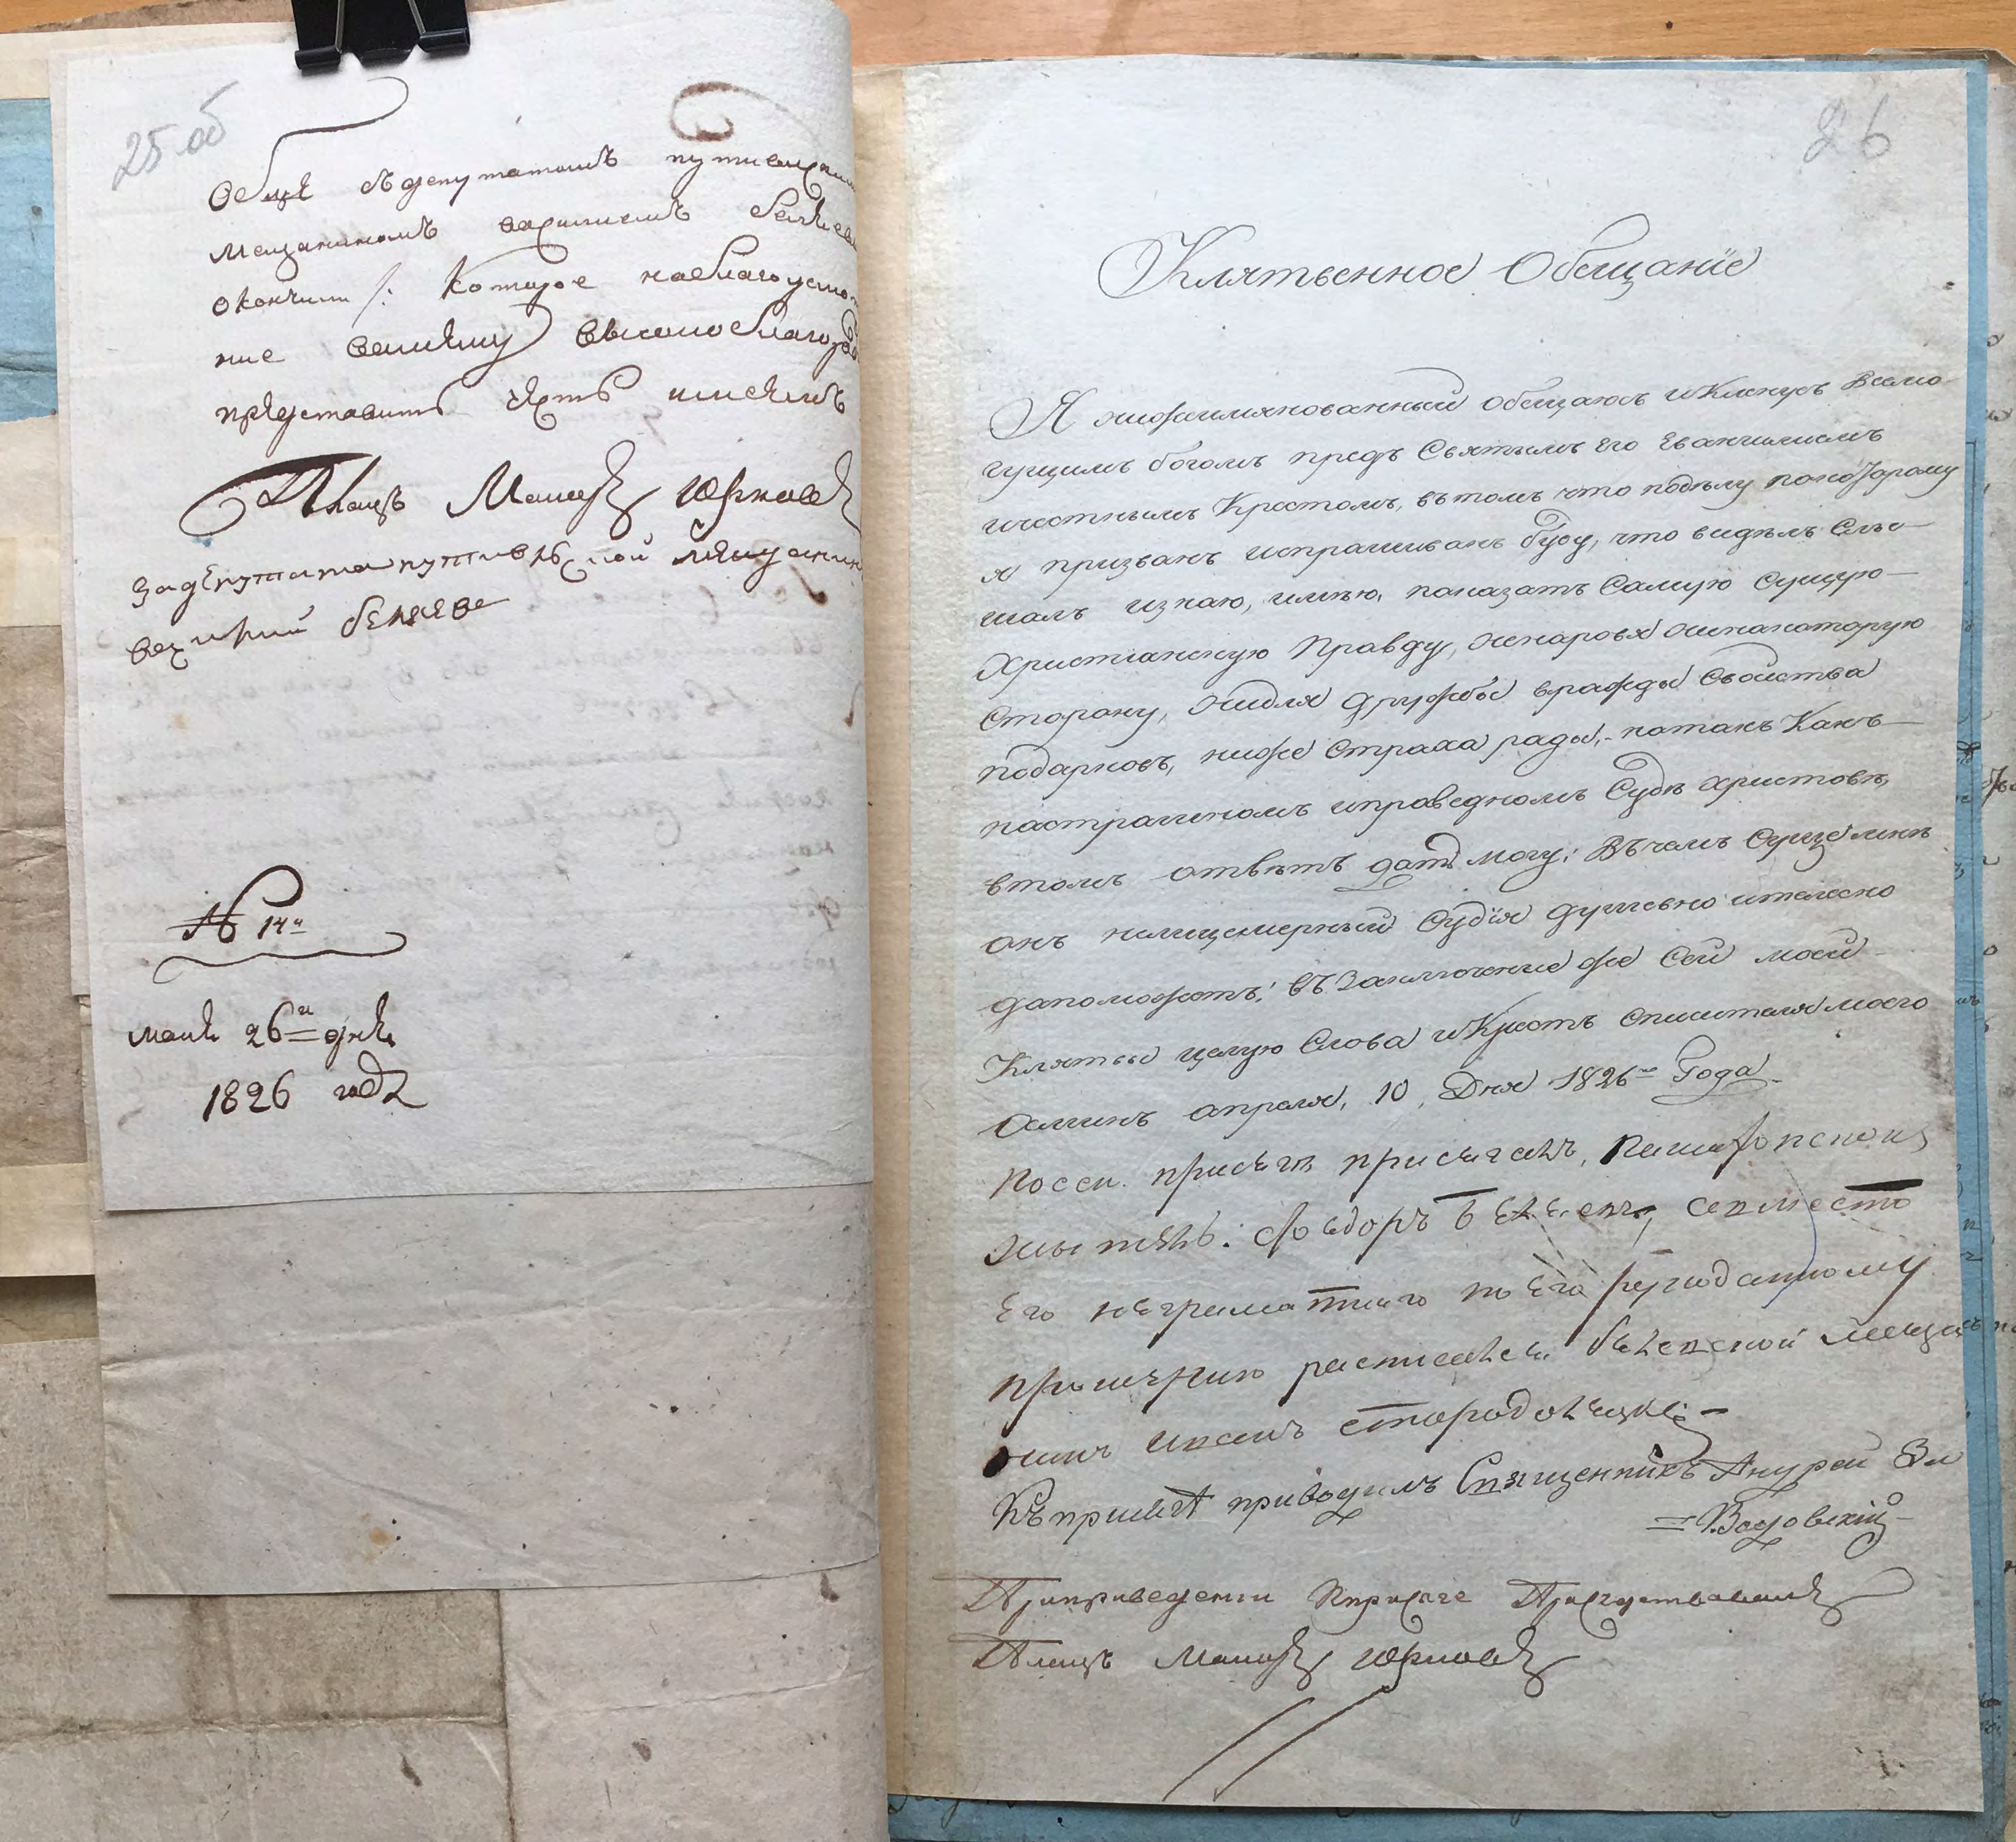 25 об
Обще съ депутатомъ путивлским
мещаниномъ
окончил /: Которое на благоусмо
ние вашему высокоблагород
представить честь имеемъ
юрковъ
За депутата путивлской мещанин
беляевъ
№ 14й
маия 26го дня
1826 года
26
Клятвенное Обещанïе
Я нижеимянованный обещаюсь и Кленусь Всемо
гущимъ богомъ предъ Святымъ Его Евангилиемъ
и честнымъ Крестомъ, въ томъ что по делу по которому
я призванъ и спрашиванъ буду, что виделъ Слы
шалъ и знаю, имею, показать Самую Сущую
Христианскую Правду, не наровя ни на которую
Сторону, ни для дружбы вражды Свойства
подарковъ, ниже Страха ради, потакъ Какъ
на страшномъ и праведномъ Суде Христове,
втомъ ответъ дать могу; Въ чемъ Суще мне
онъ нелицемерный Судïя душевно и телесно
да поможетъ; въ Заключение же Сей моей
Клятвы целую Слова и Крестъ Спасителя моего
Аминь апреля, 10, Дня 1826го Года
По сей присяге присягалъ,
житель: Фѣодоръ Беляевъ, авместо
Его неграматнаго по Его рукоданному
прошению расписался мещан
нинъ Иванъ
Къ присяге приводилъ Священникъ Андрей За
=Водовскïй
При приведении К присяге Присудствовалъ
юрковъ